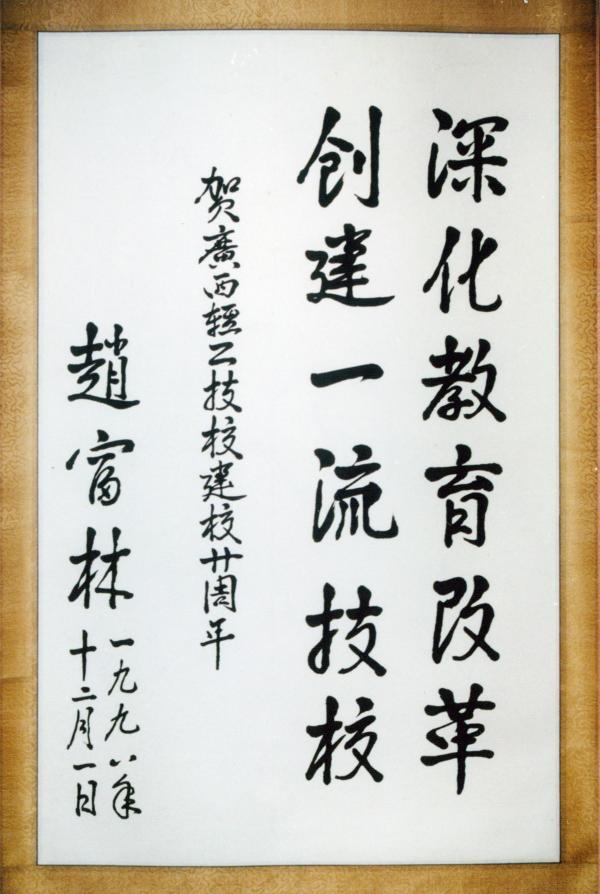 深化教育改革
创建一流技校
贺廣西轻工技校建校廿周年
趙富林
一九九八年
十二月一日